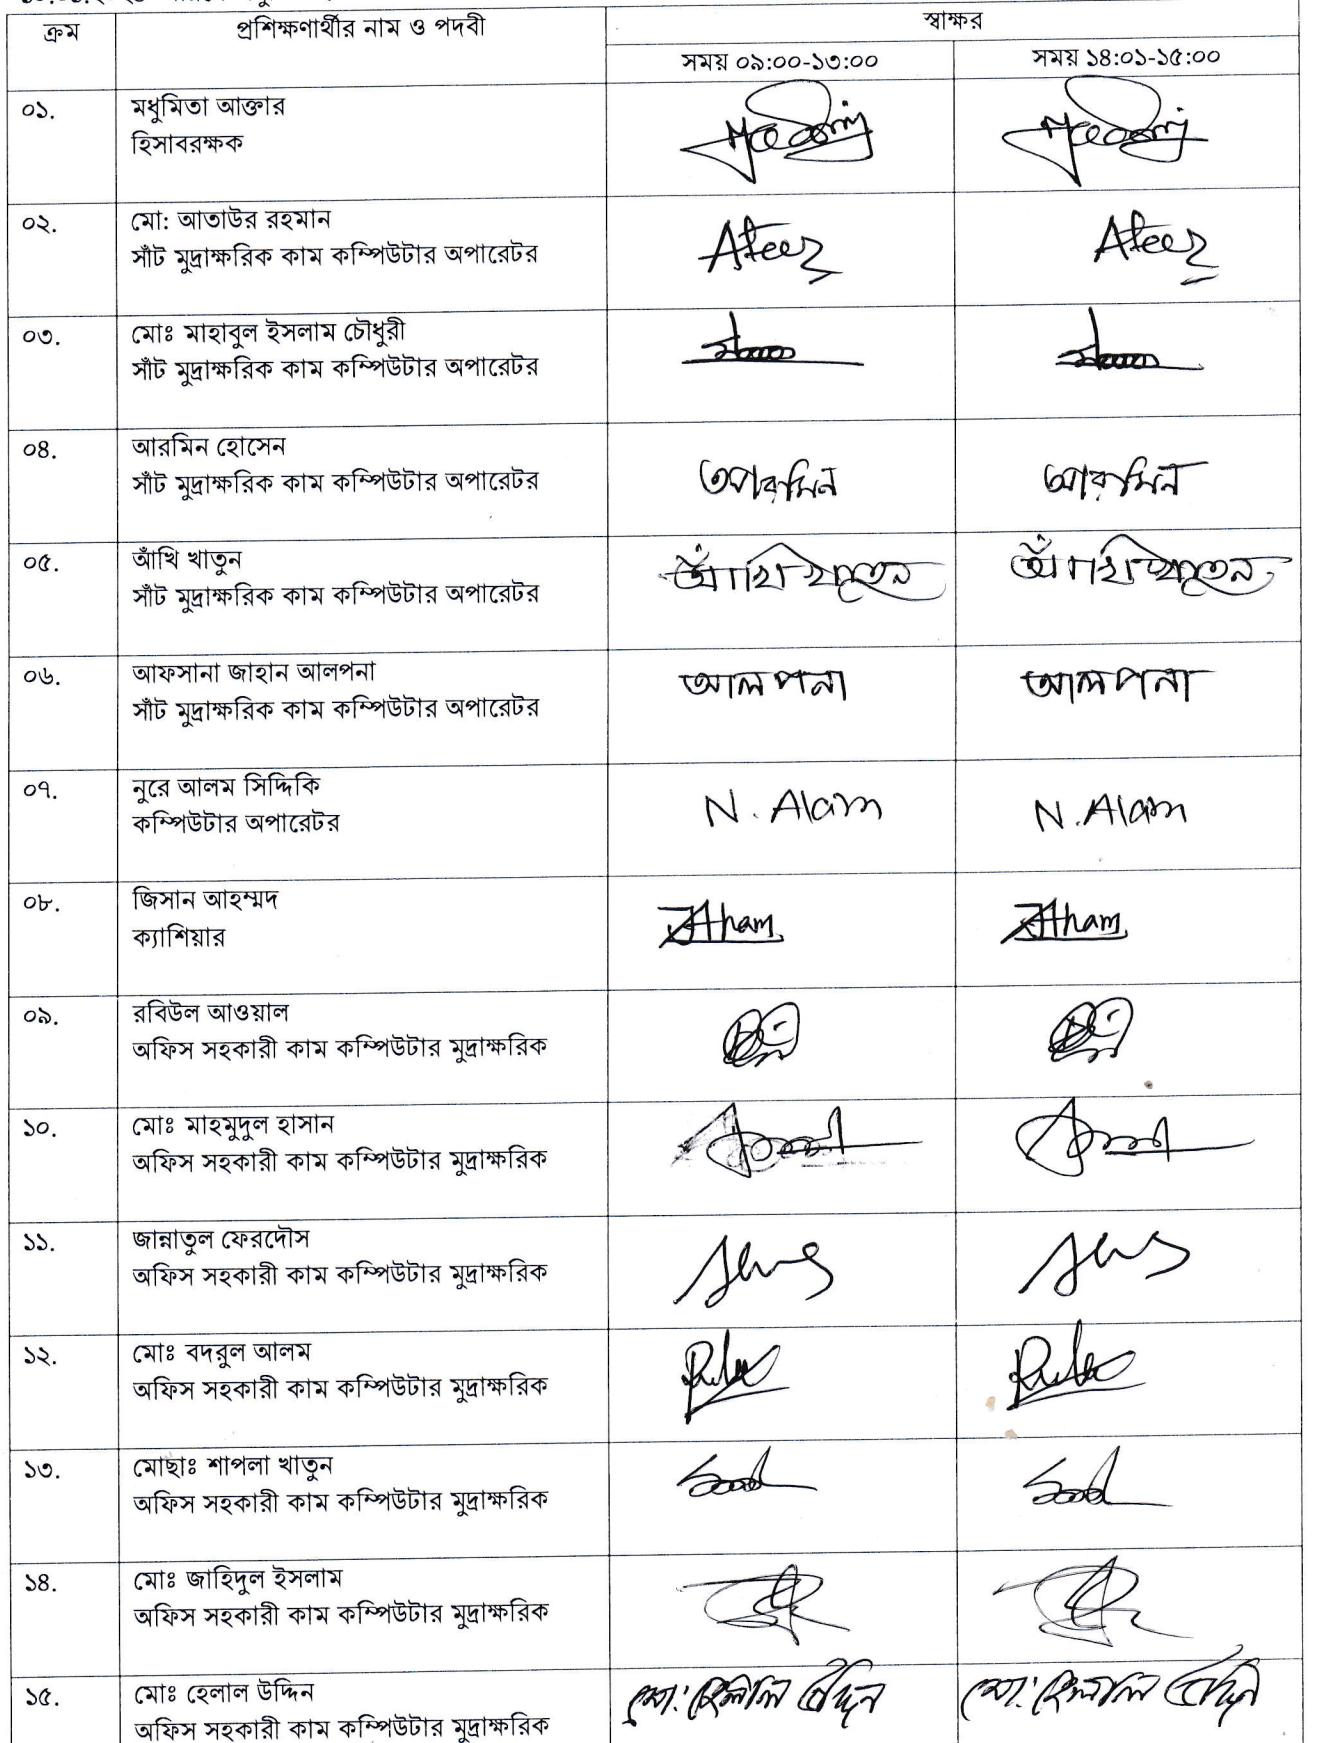 ক্রম প্রশিক্ষণার্থীর নাম ও পদবী স্বাক্ষর
সময় ০৯:০০-১৩:০০ সময় ১৪:০১-১৫:০০
০১. মধুমিতা আক্তার
হিসাবরক্ষক
০২. মো: আতাউর রহমান
সাঁট মুদ্রাক্ষরিক কাম কম্পিউটার অপারেটর
০৩. মোঃ মাহাবুল ইসলাম চৌধুরী
সাঁট মুদ্রাক্ষরিক কাম কম্পিউটার অপারেটর
০৪. আরমিন হোসেন
সাঁট মুদ্রাক্ষরিক কাম কম্পিউটার অপারেটর
আরমিন আরমিন
০৫. আঁখি খাতুন
সাঁট মুদ্রাক্ষরিক কাম কম্পিউটার অপারেটর
আঁখি খাতুন আঁখি খাতুন
০৬. আফসানা জাহান আলপনা
সাঁট মুদ্রাক্ষরিক কাম কম্পিউটার অপারেটর
আলপনা আলপনা
০৭. নুরে আলম সিদ্দিকি
কম্পিউটার অপারেটর
N. Alam N. Alam
০৮. জিসান আহম্মদ
ক্যাশিয়ার
০৯. রবিউল আওয়াল
অফিস সহকারী কাম কম্পিউটার মুদ্রাক্ষরিক
১০. মোঃ মাহমুদুল হাসান
অফিস সহকারী কাম কম্পিউটার মুদ্রাক্ষরিক
১১. জান্নাতুল ফেরদৌস
অফিস সহকারী কাম কম্পিউটার মুদ্রাক্ষরিক
১২. মোঃ বদরুল আলম
অফিস সহকারী কাম কম্পিউটার মুদ্রাক্ষরিক
১৩. মোছাঃ শাপলা খাতুন
অফিস সহকারী কাম কম্পিউটার মুদ্রাক্ষরিক
১৪. মোঃ জাহিদুল ইসলাম
অফিস সহকারী কাম কম্পিউটার মুদ্রাক্ষরিক
১৫. মোঃ হেলাল উদ্দিন
অফিস সহকারী কাম কম্পিউটার মুদ্রাক্ষরিক
মো: হেলাল উদ্দিন মো: হেলাল উদ্দিন